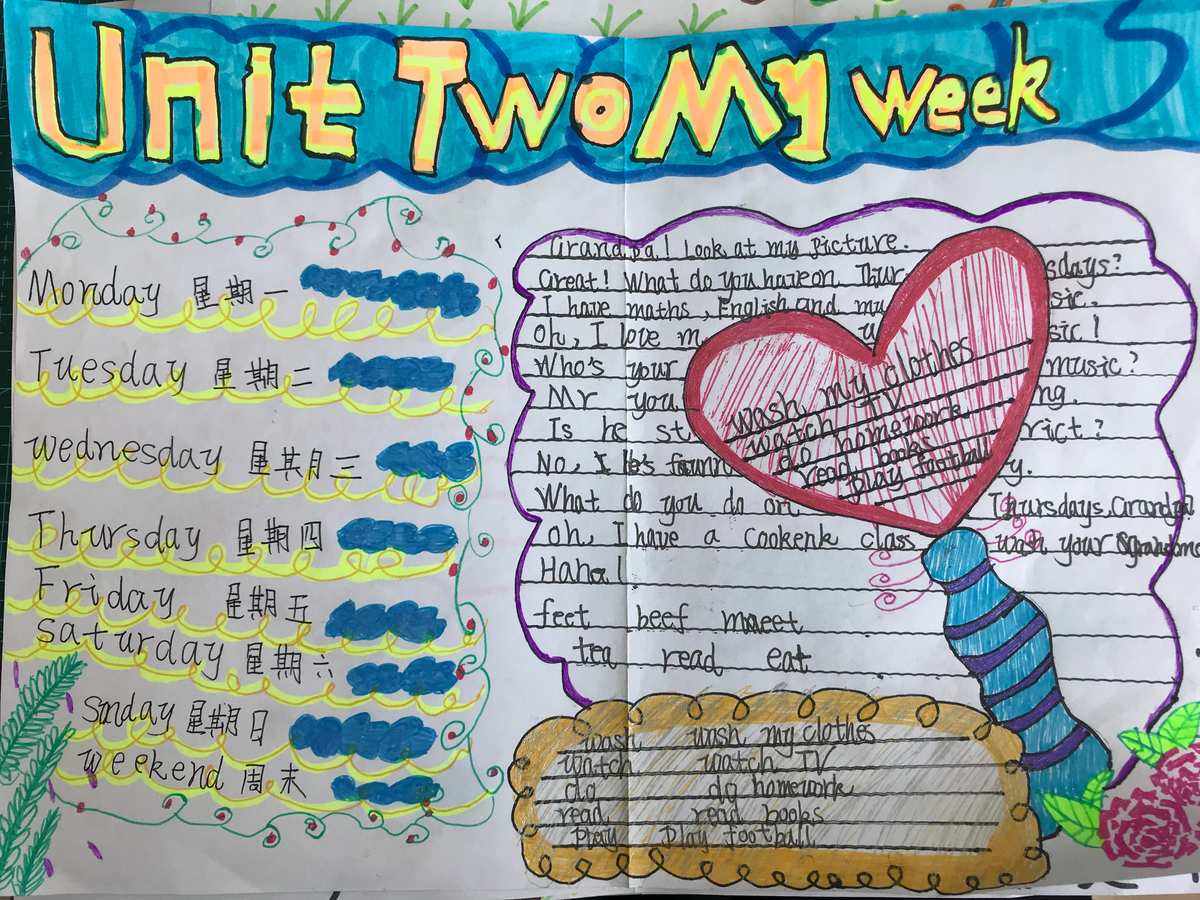 Unit Two My Week
Monday 星期一
Tuesday 星期二
wednesday 星期三
Thursday 星期四
Friday 星期五
saturday 星期六
Sunday 星期日
weekend 周末
Grandpa! Look at my picture.
Great! What do you have on Thursdays?
I have maths, English and music.
Oh, I love music!
Who's your music?
Mr you ng.
Is he strict?
No, I he's
What do you do on Thursdays, Grandpa
Oh, I have a Cookenk class wash your
Haha!
feet beef
tea read eat
wash my clothes
watch TV
do homework
read books
play football
wash wash my clothes
watch watch TV
do do homework
read read books
play play football